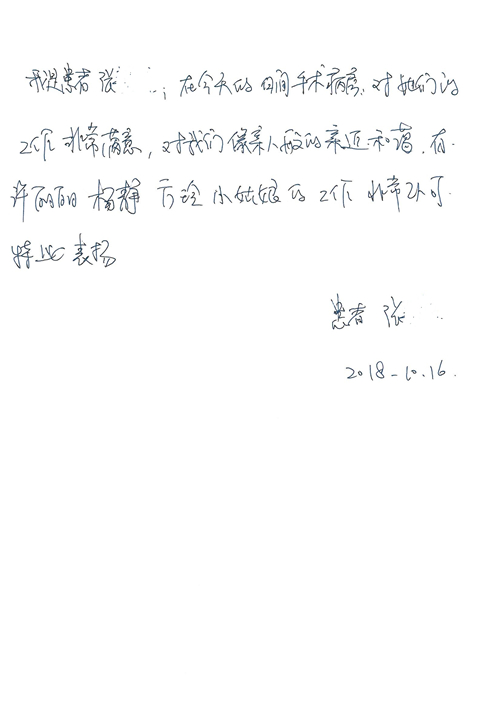 我是患者张 ，在今天的日间手术病房，对她们的
工作非常满意，对我们像亲人般的亲近和蔼．有
许丽丽 杨静 方 小姑娘的工作非常认可
特此表扬
患者 张
2018-10.16.